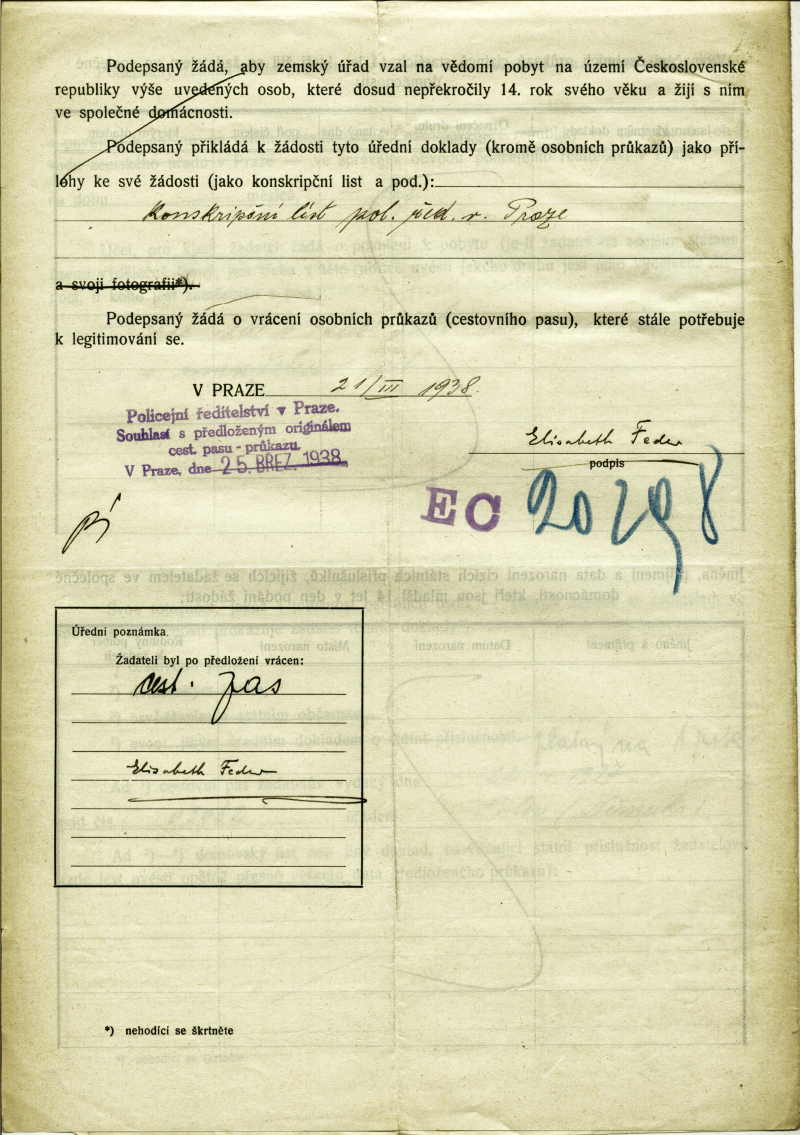 Podepsaný žádá, aby zemský úřad vzal na vědomí pobyt na území Československé
republiky výše uvedených osob, které dosud nepřekročily 14. rok svého věku a žijí s ním
ve společné domácnosti.
Podepsaný přikládá k žádosti tyto úřední doklady (kromě osobních průkazů) jako pří-
lohy ke své žádosti (jako konskripční list a pod.):
Konskripční list pol. řed. v. Praze
a svoji fotografii*).
Podepsaný žádá o vrácení osobních průkazů (cestovního pasu), které stále potřebuje
k legitimování se.
V PRAZE 21/III 1938.
Policejní ředitelství v Praze.
Souhlasí s předloženým originálem
cest. pasu - průkazu.
V Praze, dne 25. BŘEZ. 1938
Elisabeth Feder
podpis
EC 20198
Úřední poznámka.
Žadateli byl po předložení vrácen:
cest. pas
Elisabeth Feder
*) nehodící se škrtněte